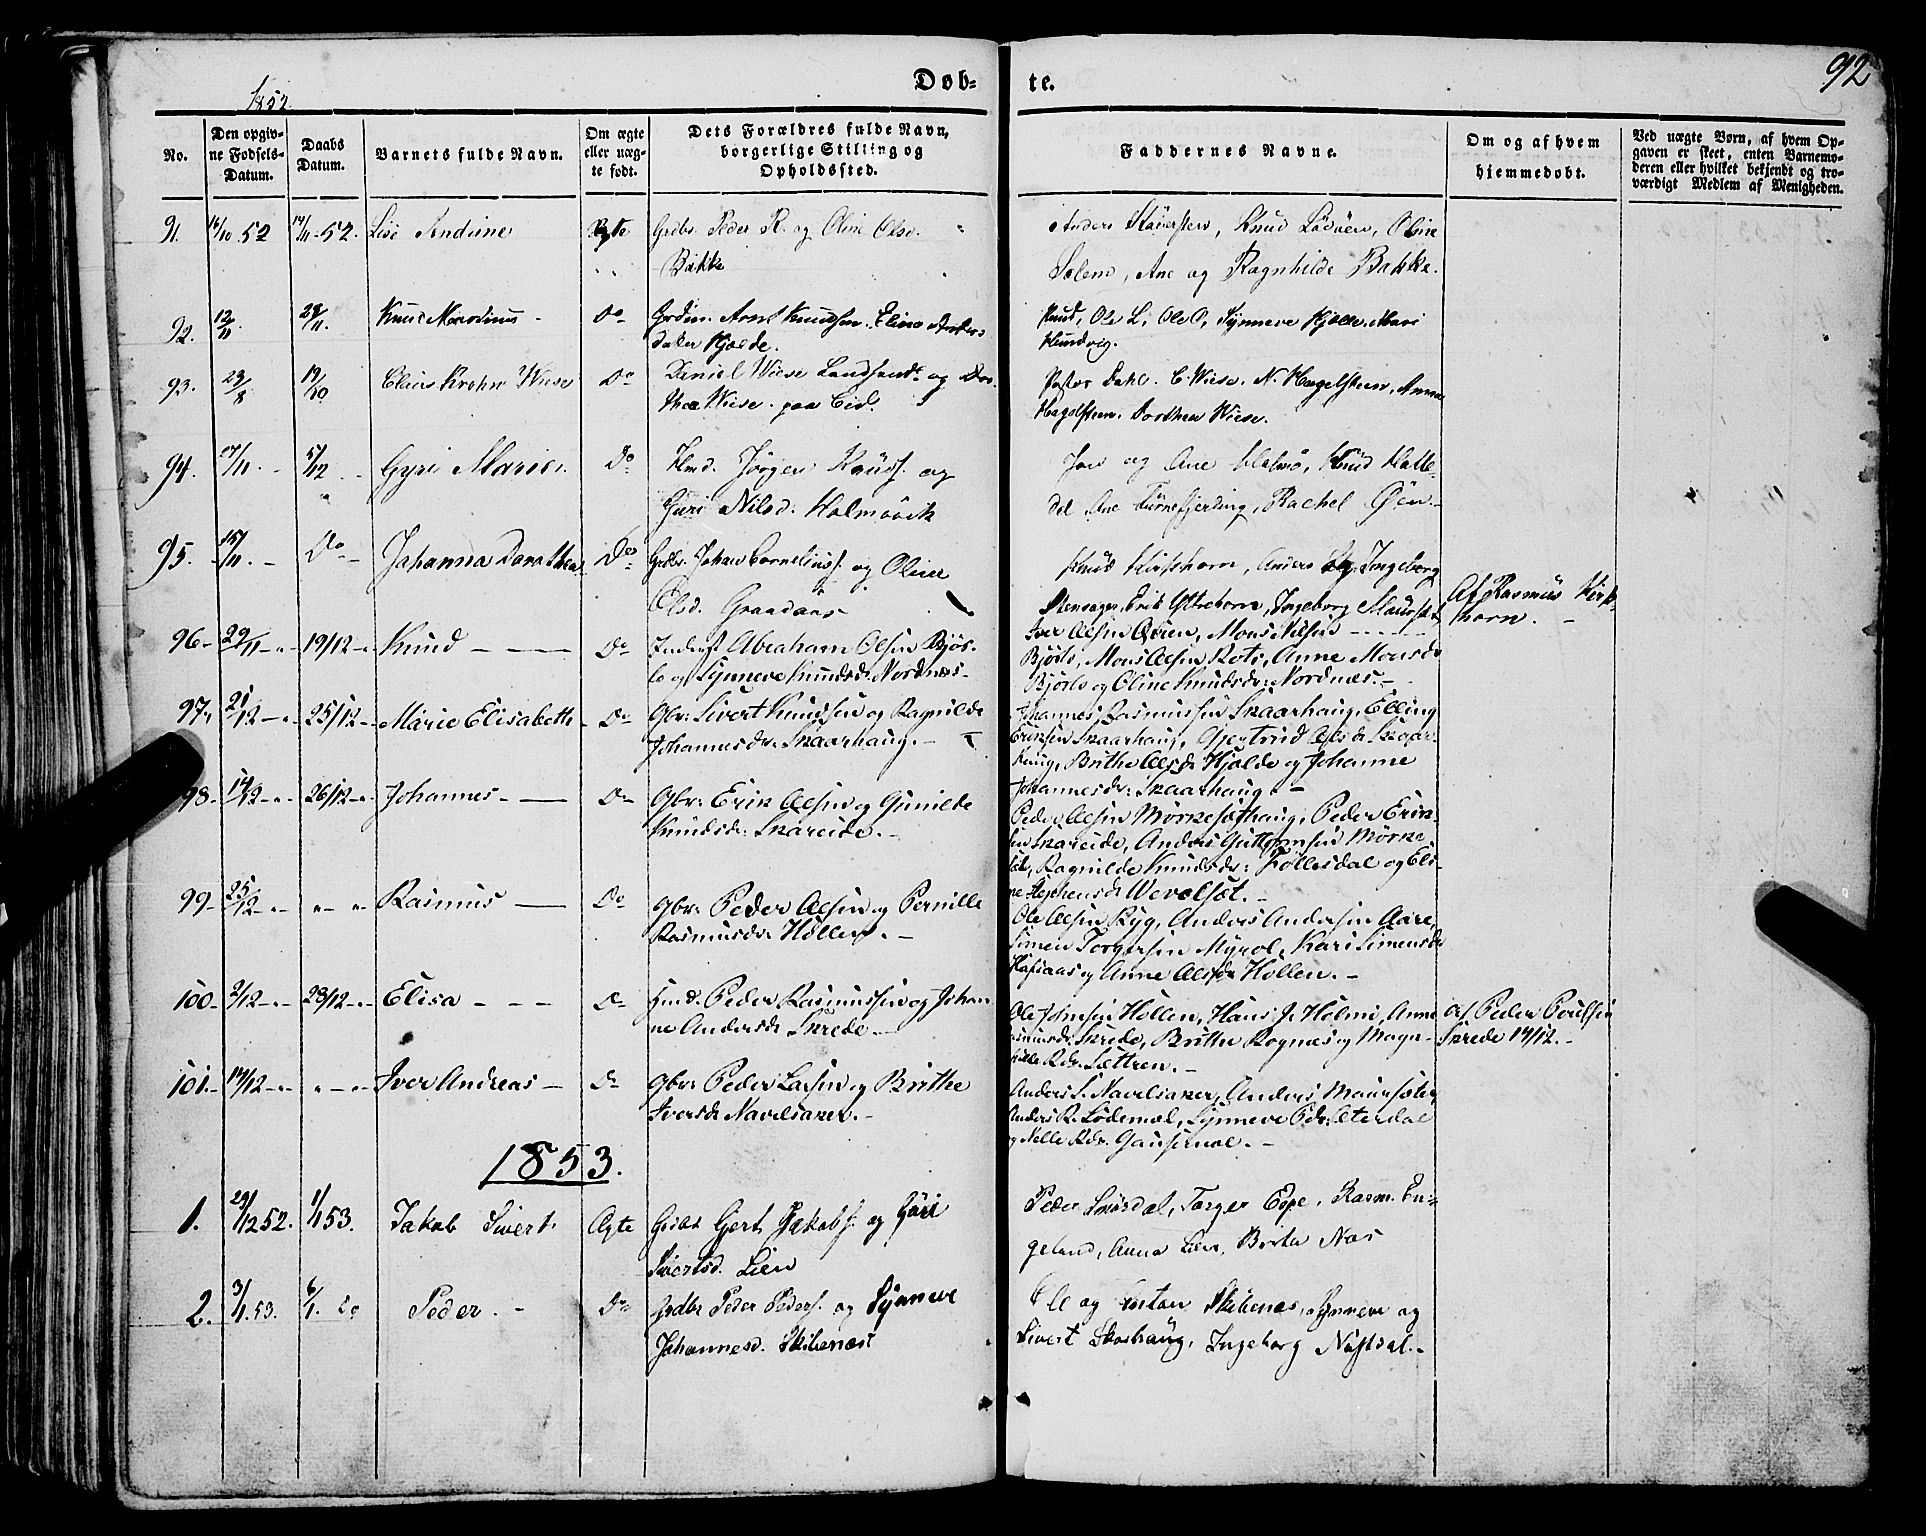 92
1852.
Døb-
te.
No.
Den opgiv-
ne Fødsels-
Datum.
Daabs
Datum.
Barnets fulde Navn.
Om ægte
eller uæg-
te født.
Dets Forældres fulde Navn,
borgerlige Stilling og
Opholdssted.
Faddernes Navne.
Om og af hvem
hjemmedøbt.
Ved uægte Børn, af hvem Op-
gaven er skeet, enten Barnemo-
deren eller hvilket bekjendt og tro-
værdigt Medlem af Menigheden.
91. 16/10 52 14/11 52. Lise Andrine Ægte Grdbr. Peder R. og Oline Olsd.
Bakke
Anders Knud Oline
Solem, Ane og Ragnhilde Bakke.
92. 12/11 28/11. Knud Do Arnt Knudsen
Hjelde.
Knud, Ole L, Ole O, Synneve Hjelle, Mari
Hundvig.
93. 29/8 19/10 Claus Krohn Wiese Do Daniel Wiese og Do-
thea Wiese paa Eid.
Pastor Dahl. C. Wiese. N. Hagelsteen, Anna
Hagelsteen. Dorthea Wiese.
94. 5/12 Gyri Marie. Do Hmd. Jørgen Knuds. og
Guri Nilsd. Holmøvik
og Ane Knud
dal Ane Rachel Øen
95. 15/11 Do Johanna Dorothea Do Grdbr. Johan Cornelius. og Oline
Olsd. Graadaas
Knud Kirkhorn, Anders Ingeborg
Stensager, Erik Yttrehorn, Ingeborg
Af Rasmus Kirk-
horn.
96- 29/11 19/12 Knud Do Inderst Abraham Olsen Bjør-
lo og Synneve Knudsdr. Nordnæs
Iver Olsen Øren, Mons Nilsen
Bjørlo, Mons Olsen Rots, Anne Monsdr
Bjørlo og Oline Knudsdr: Nordnæs.-
97- 21/12 25/12 Marie Elisabeth Do Gbr: Sivert Knudsen og Ragnilde
Johannesdr. Skaarhaug.-
Johannes Rasmussen Skaarhaug, Elling
Eriksen Skaarhaug, Gjertrud Olsdr Skaar-
haug, Brithe Olsdr Hjelde og Johanne
Johannesdr: Skaarhaug.-
98- 14/12 26/12 Johannes Do Gbr: Erik Olsen og Gunilde
Knudsdr: Skareide.-
Peder Olsen Mørkesæthaug, Peder Erik-
sen Skareide, Anders Guttormsen Mørke-
Ragnilde Knudsdr: Føllesdal og Eli-
ne Stephensdr Wevelset.
99- 25/12 " " Rasmus Do Gbr: Peder Olsen og Pernille
Rasmusdr Hollen.-
Ole Olsen Ryg, Anders Andersen Aare,
Simen Torgersen Myrol, Kari Simensdr
og Anne Olsdr Hollen.-
100- 2/12 28/12 Elisa Do Hmd. Peder Rasmussen og Johan-
ne Andersdr Skrede
Ole Hollen, Hans J. Holmø, Anne
Rasmusdr Skrede, Brithe Rognes og Magn-
hilde Rdr. Sættren.-
Af Peder Poulsen
Skrede 14/12.-
101.- 14/12 " " Iver Andreas Do Gbr: Peder Larsen og Brithe
Iversdr Navelsaker.-
Anders S. Navelsaker, Anders Maurseter,
Anders R. Lødemel, Synneve Pdr: Oterdal
og Nelle Rdr. Gausemel.-
1853.
1. 29/12 52. 1/1 53. Jakob Sivert. Ægte Grdbr Gert Jakobs. og Guri
Sivertsd. Lien
Peder Torger Espe, Rasm. En-
geland, Anna Lien, Birthe Nos
2. 3/1. 53. 6/1. Peder. Do Grdbr Peder Peders. og Synneve
Johannesd. Skibenæs
Ole og Anton Skibenæs, Synneve og
Sivert Skarhaug, Ingeborg Nøstdal.-